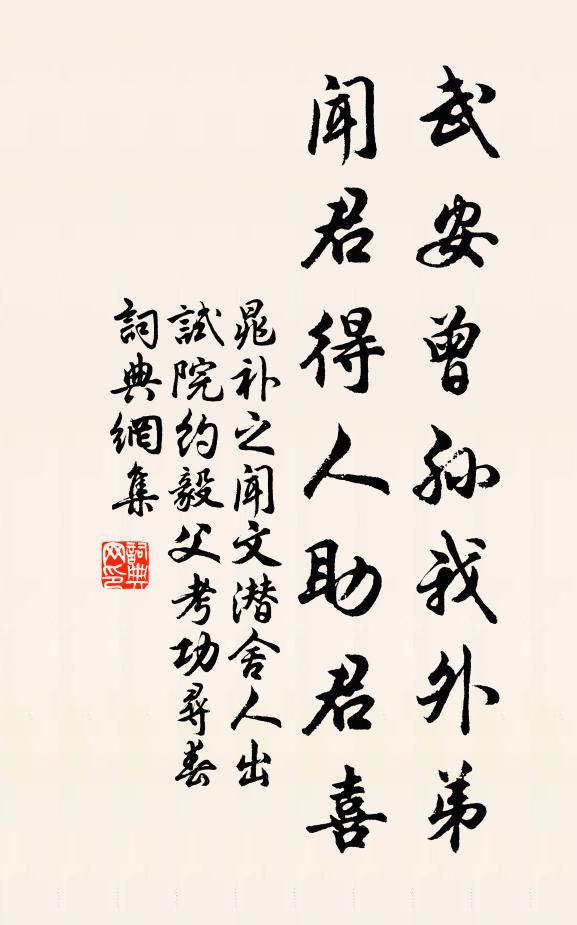 武安曾孙我外弟
闻君得人助君喜
晁补之闻文潜舍人出
試院约毅父考功尋春
詞典網集
詞典网印